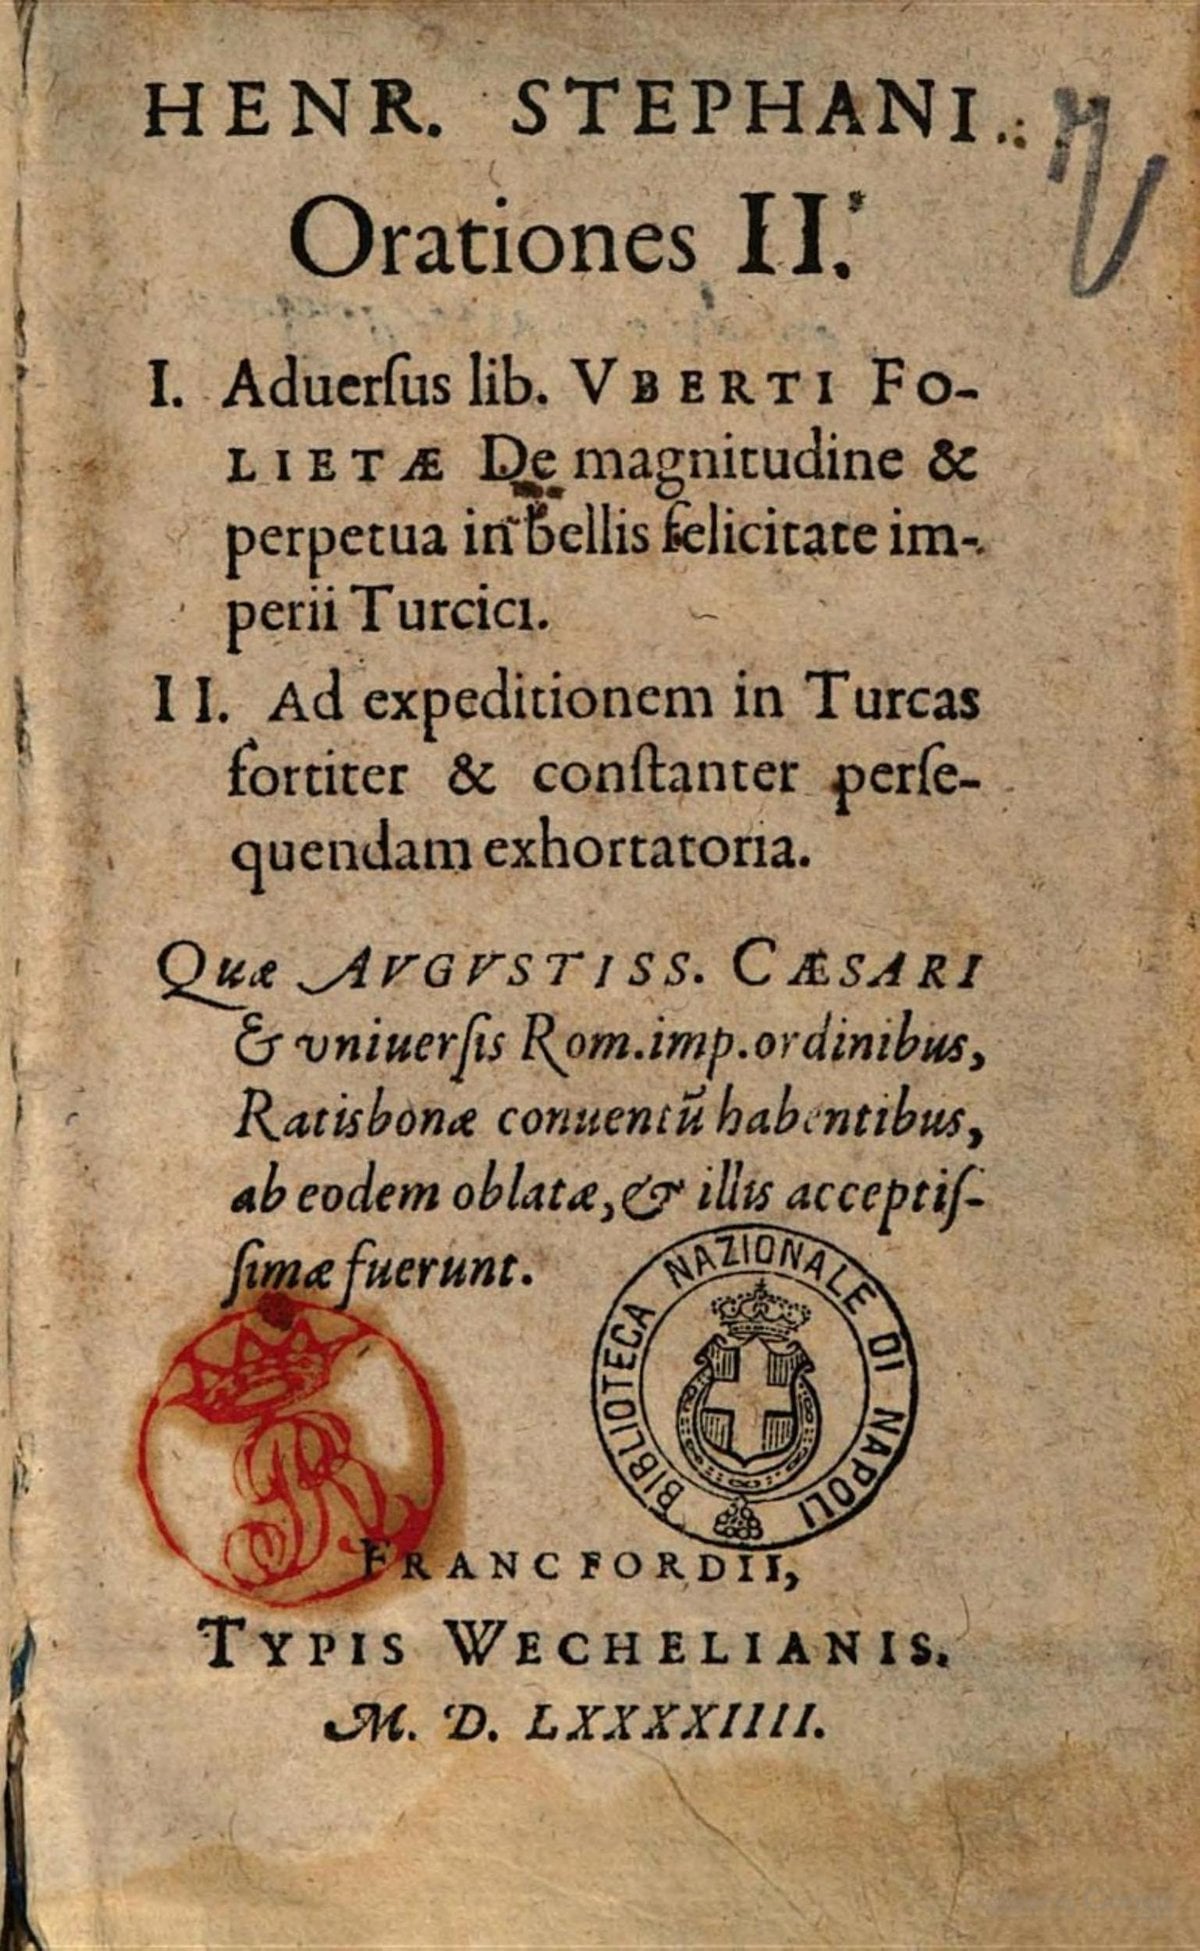 HENR. STEPHANI.
Orationes II.
I. Aduerſus lib. VBERTI FO-
LIETÆ De magnitudine &
perpetua in bellis felicitate im-
perii Turcici.
II. Ad expeditionem in Turcas
fortiter & conſtanter perſe-
quendam exhortatoria.
Quæ AVGVSTISS. CÆSARI
& vniuerſis Rom. imp. ordinibus,
Ratisbonæ conuentū habentibus,
ab eodem oblatæ, & illis acceptiſ-
ſimæ fuerunt.
BIBLIOTECA NAZIONALE DI NAPOLI
FRANCFORDII,
TYPIS WECHELIANIS.
M. D. LXXXXIIII.